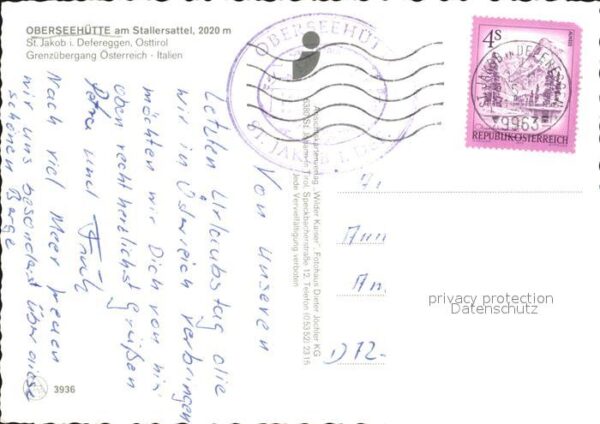 OBERSEEHÜTTE am Stallersattel, 2020 m
St. Jakob i. Defereggen, Osttirol
Grenzübergang Österreich - Italien
OBERSEEHÜTTE
ST. JAKOB i. D
4S
REPUBLIK ÖSTERREICH
ST. JAKOB IN DEFEREGGEN
9963
Von unseren
letzten Urlaubstag die
wir in Österreich verbringen
möchten wir Dich von hier
oben recht herlichst grüßen
Petra und
Nach viel Meer freuen
wir uns besonders über diese
schönen Berge
Ansichtskartenverlag "Wilder Kaiser", Fotohaus Dieter Jöchler KG
St. Johann in Tirol, Speckbacherstraße 12, Telefon (05352) 2315
Jede Vervielfältigung verboten
Ann
An
D 72-
privacy protection
Datenschutz
3936